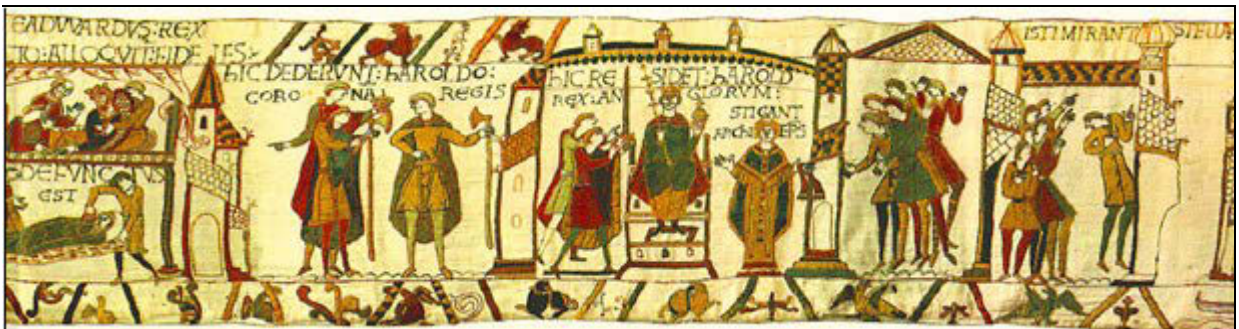 EADVVARDVS:REX
ALLOCVIT:FIDELES:
DEFVNCTVS
EST
hIC DEDERVNT:hAROLDO:
CORONA REGIS
hIC RESIDET:hAROLD
REX:ANGLORVM:
STIGANT
ARChIEPS
ISTI MIRANT STELLA